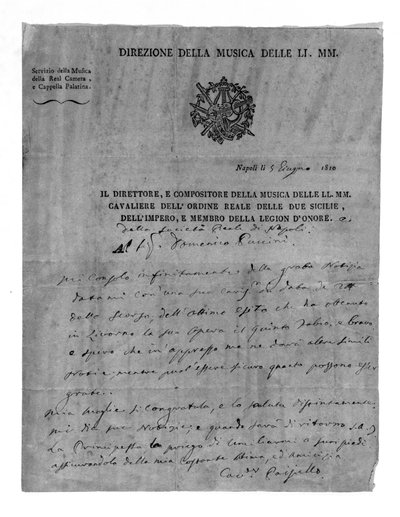 DIREZIONE DELLA MUSICA DELLE LL. MM.
Servizio della Musica
della Real Camera,
e Cappella Palatina.
Napoli li 5 Giugno 1810
IL DIRETTORE, E COMPOSITORE DELLA MUSICA DELLE LL. MM.
CAVALIERE DELL'ORDINE REALE DELLE DUE SICILIE,
DELL'IMPERO, E MEMBRO DELLA LEGION D'ONORE. e
della Società Reale di Napoli.
Al Domenico Puccini.
Mi consolo infinitamente della grata Notizia
datami con una sua in data de
dello scorso, dell'ottimo esito che ha ottenuto
in Livorno la sua Opera il Quinto Fabio, e bravo
e spero che in appresso me ne darà altre simili
mentre può essere sicuro quanto possono esser
grate.
Mia Moglie si congratula, e lo saluta distintamente.
mi dia sue Notizie, e quando sarà di ritorno
La Principessa la priego di
assicurandolo della mia costante stima, ed amicizia
Paisiello